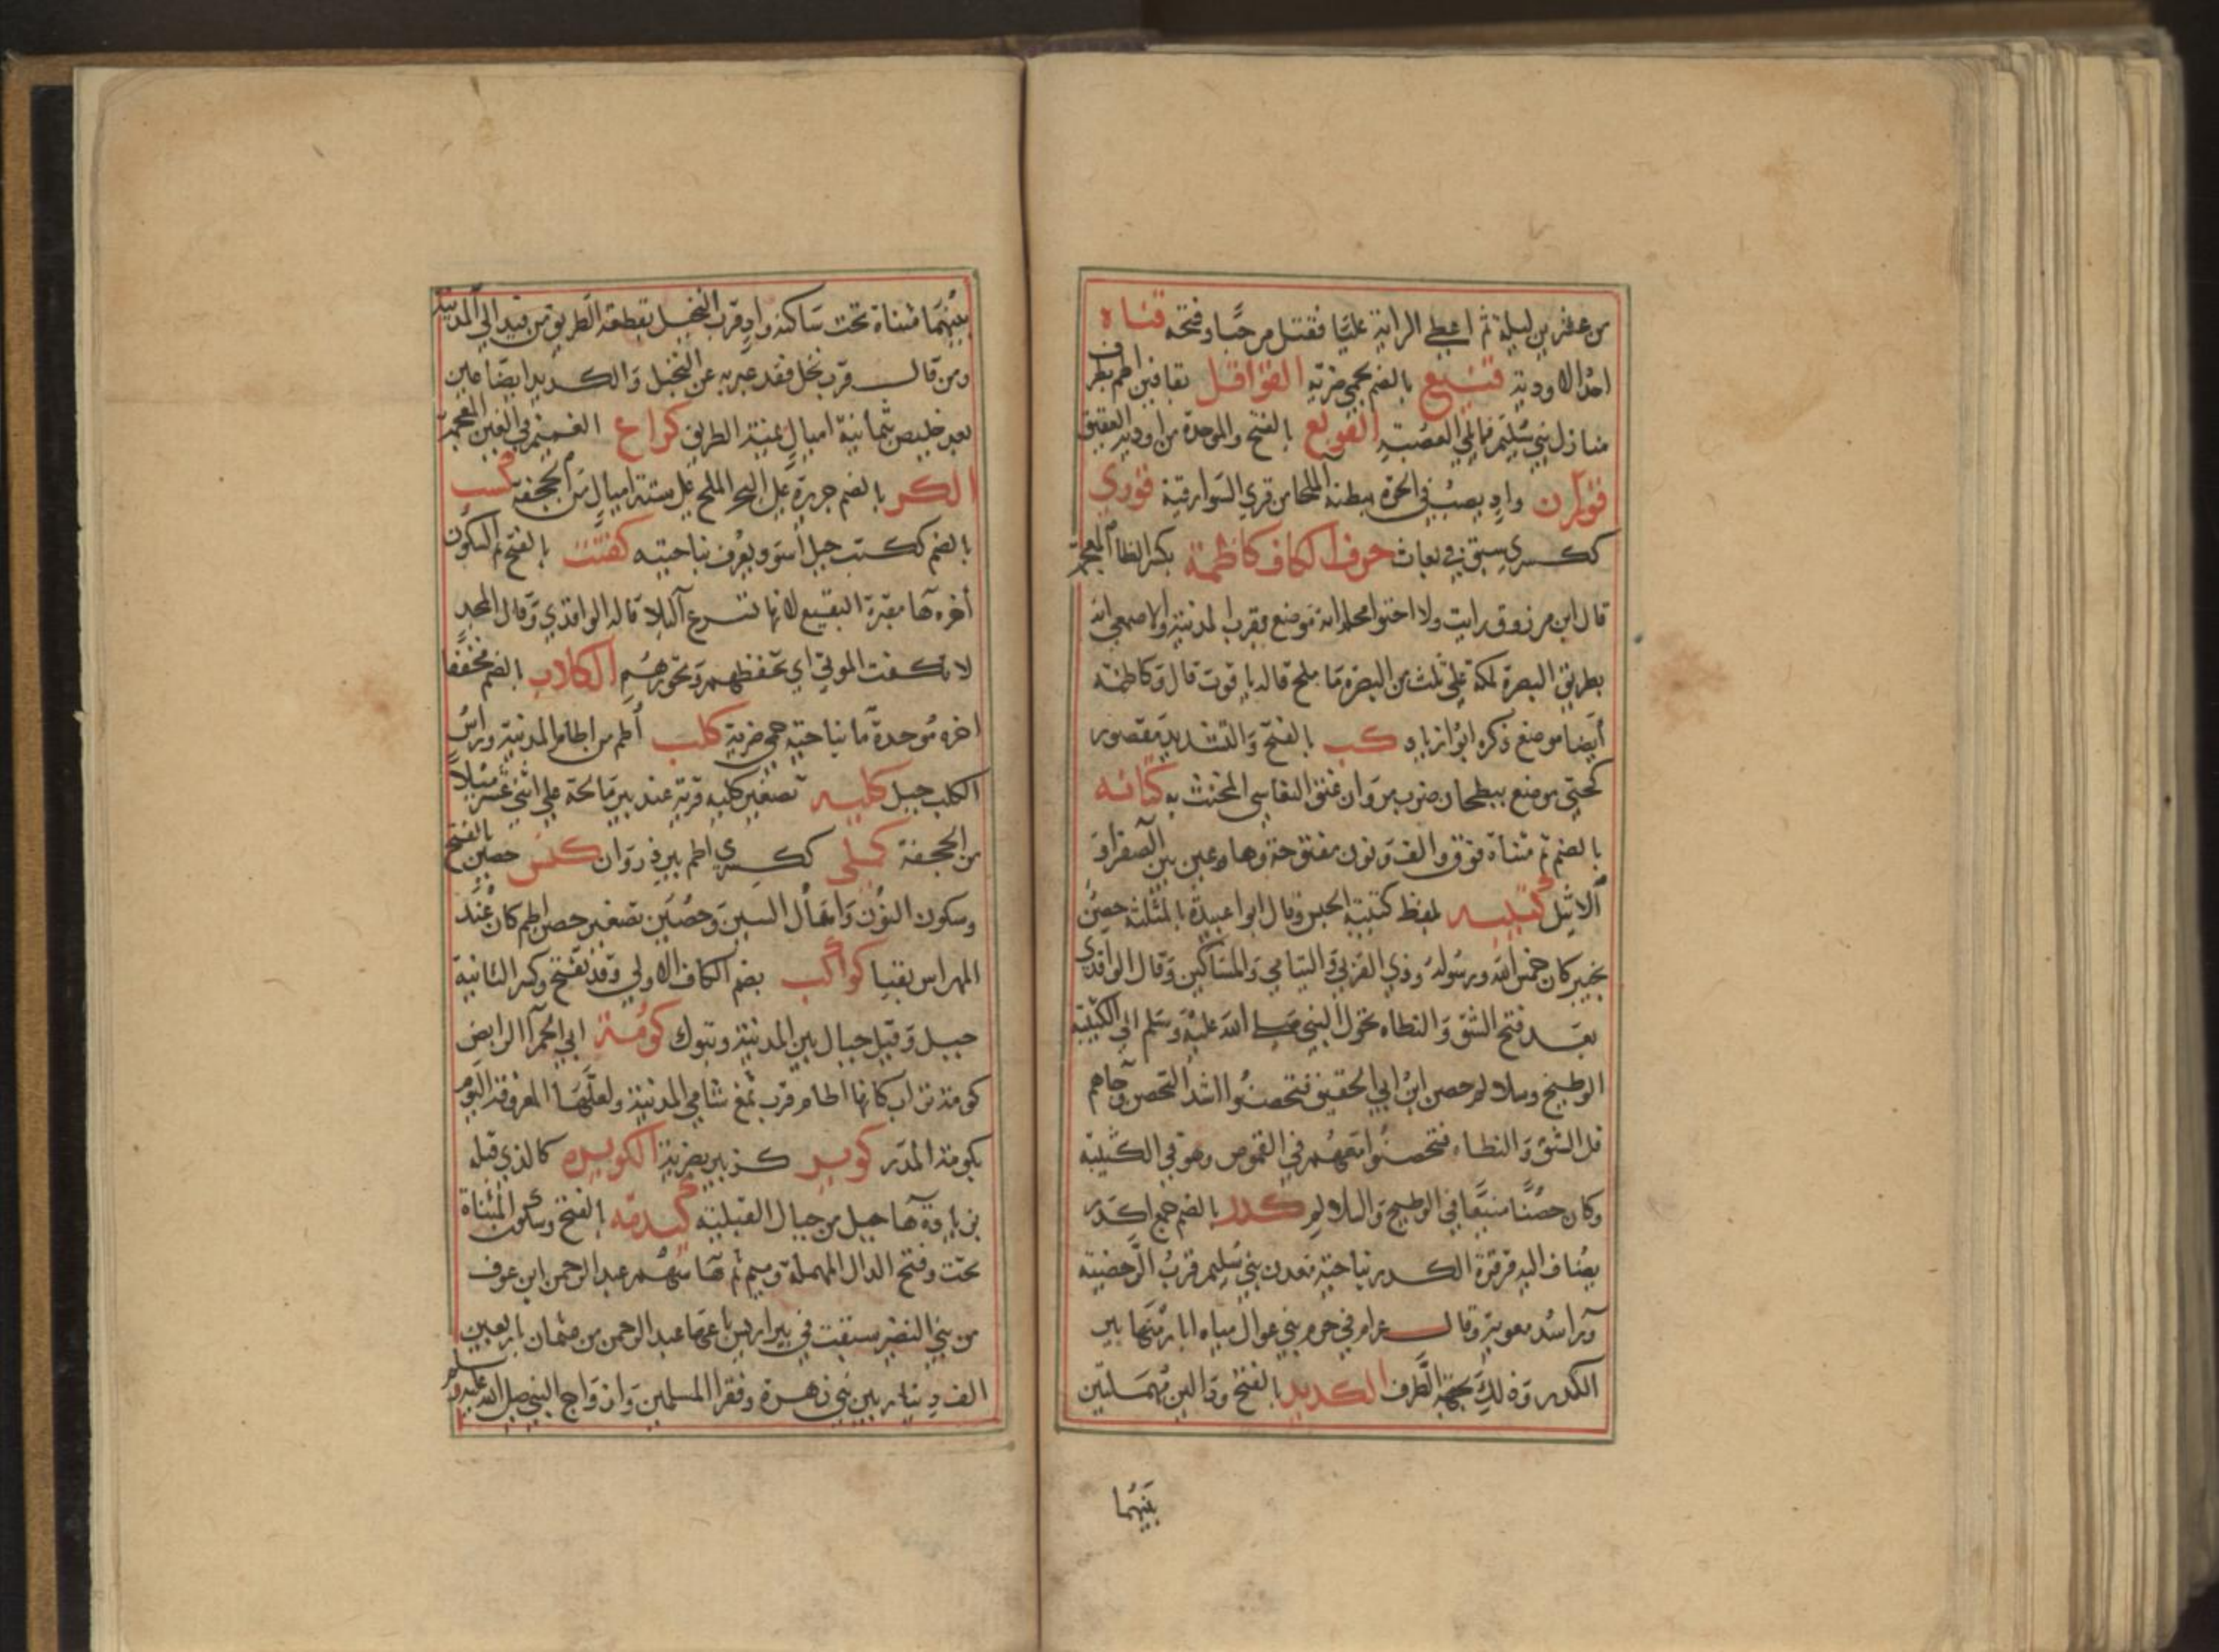 من عشرين ليلة ثم اعطى الراية عليا فقتل مرحبا وفتحه قناه
احد الاودية قنيع بالضم بحمى ضرية القواقل بقافين اطم بطرف
منازل بني سليم مما يلي العصبة القوبع بالفتح والموحدة من اودية العقيق
قوران وادٍ يصب في الحرة ببطنه الملحا من قرى السوارقية قورى
ككسرى سبق في بعاث حرف الكاف كاظمة بكسر الظا المعجمة
قال ابن مرزوق رايت ولا احتوا محله انه موضع بقرب المدينة والاصمعي انه
بطريق البصرة لمكة على ثلث من البصرة ما ملح قاله ياقوت قال وكاظمة
أيضا موضع ذكره ابو ازياد كب بالفتح والتشديد مقصور
كحتى موضع ببطحان ضرب مروان عنق النغاشي المخنث به كتانه
بالضم ثم مثناة فوق والف ونون مفتوحة وهاء عين بين الصفراو
الاثيل كتيبه بلفظ كتيبة الجيش وقال ابو اعبيدة بالمثلثة حصن
بخيبر كان خمس الله ورسوله وذي القربى واليتامى والمساكين وقال الواقدي
بعد فتح الشق والنطاه تحول النبي صلى الله عليه وسلم الى الكتيبة
الوطيح وسلالم حصن ابن ابي الحقيق فتحصنوا اشد التحصن وجاهم
فل الشق والنطاه فتحصنوا معهم في القموص وهو في الكثيبة
وكان حصنًا منيعًا في الوطيح والسلالم كدر بالضم جمع اكدر
يضاف اليه قرقرة الكدر بناحية معدن بني سليم قرب الرحضية
وراسد معوية وقال عرام في حرم بني عوال مياه ابار منها بير
الكدر وذلك بجهة الطرف الكديد بالفتح ودالين مهملتين
بينهما
بينهما مثناة تحت ساكنه وادٍ قرب النخيل يقطعه الطريق من فيد الى المدينة
ومن قال قرب نخل فقد عبر به عن النخيل والكديد ايضا عين
بعد خليص بثمانية اميال يمنة الطريق كراع الغميم في الغين المعجمة
الكر بالضم جزيرة على البحر الملح على ستة اميال من الجحفة كسب
بالضم ككتب جبل اسود يعرف بناحيته كفتت بالفتح ثم السكون
أخره ها مقبرة البقيع لانها تسرع البلا قاله الواقدي وقال المجد
لا تكفت الموتى اي تحفظهم وتحرزهم الكلاب بالضم مخففا
اخره موحدة ما بناحية حمى ضرية كلب أطم من اطام المدينة وراس
الكلب جبل كليه تصغير كليه قرية عند بير مالحة على اثني عشر ميلاً
من الجحفة كملى ككسرى اطم بير ذروان كنس حصين بالفتح
وسكون النون واهمال السين وحصين تصغير حصن اطم كان عند
المهراس بقبا كواكب بضم الكاف الاولى وقد تفتح وكسر الثانية
جبل وقيل جبال بين المدينة وتبوك كومة ابي الحمرا الرابض
كومة تراب كانها اطام قرب ثمغ شامي المدينة ولعلها المعروفة اليوم
بكومة المدر كوير كزبير بضرية الكويره كالذي قبله
بزيادة ها جبل من جبال القبلية كيدمه بالفتح وسكون المثناة
تحت وفتح الدال المهملة وميم ثم ها سهم عبد الرحمن ابن عوف
من بني النضير سبقت في بير اريس باعها عبد الرحمن من عثمان باربعين
الف دينار بين بني زهرة وفقرا المسلمين وازواج النبي صلى الله عليه وسلم